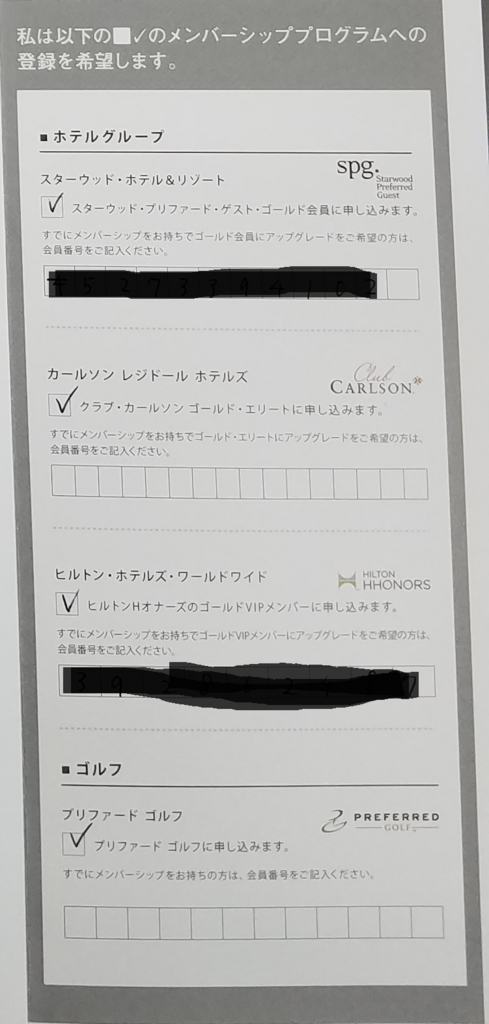 私は以下の■✓のメンバーシッププログラムへの
登録を希望します。
■ ホテルグループ
スターウッド・ホテル&リゾート
spg.
Starwood
Preferred
Guest
✓ スターウッド・プリファード・ゲスト・ゴールド会員に申し込みます。
すでにメンバーシップをお持ちでゴールド会員にアップグレードをご希望の方は、
会員番号をご記入ください。
カールソン レジドール ホテルズ
Club
CARLSON
✓ クラブ・カールソン ゴールド・エリートに申し込みます。
すでにメンバーシップをお持ちでゴールド・エリートにアップグレードをご希望の方は、
会員番号をご記入ください。
ヒルトン・ホテルズ・ワールドワイド
HILTON
HHONORS
✓ ヒルトンHオナーズのゴールドVIPメンバーに申し込みます。
すでにメンバーシップをお持ちでゴールドVIPメンバーにアップグレードをご希望の方は、
会員番号をご記入ください。
■ ゴルフ
プリファード ゴルフ
PREFERRED
GOLF
✓ プリファード ゴルフに申し込みます。
すでにメンバーシップをお持ちの方は、会員番号をご記入ください。